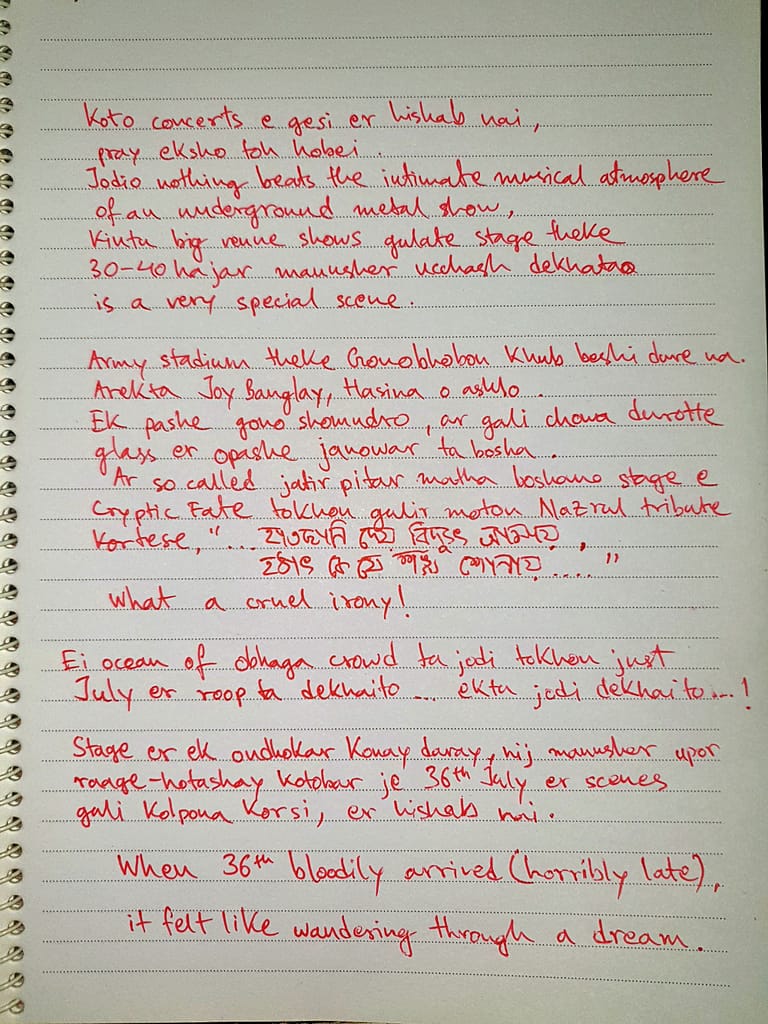 Koto concerts e gesi er hishab nai,
pray eksho toh hobei.
Jodio nothing beats the intimate musical atmosphere
of an underground metal show,
Kintu big venue shows gulate stage theke
30-40 hajar manusher ucchash dekhatao
is a very special scene.
Army stadium theke Gonobhobon khub beshi dure na.
Arekta Joy Banglay, Hasina o ashlo.
Ek pashe gono shomudro, ar gali chowa durotte
glass er opashe janowar ta bosha.
Ar so called jatir pitar matha boshano stage e
Cryptic Fate tokhon gulir moton Nazrul tribute
kortese, "... হাতছানি দেয় বিদ্যুৎ আমায়,
হঠাৎ কে যে শঙ্খ শোনায়....."
What a cruel irony!
Ei ocean of obhaga crowd ta jodi tokhon just
July er roop ta dekhaito ... ekta jodi dekhaito....!
Stage er ek ondhokar konay daray, nij manusher upor
raage-hotashay kotobar je 36th July er scenes
guli kolpona korsi, er hishab nai.
When 36th bloodily arrived (horribly late),
it felt like wandering through a dream.